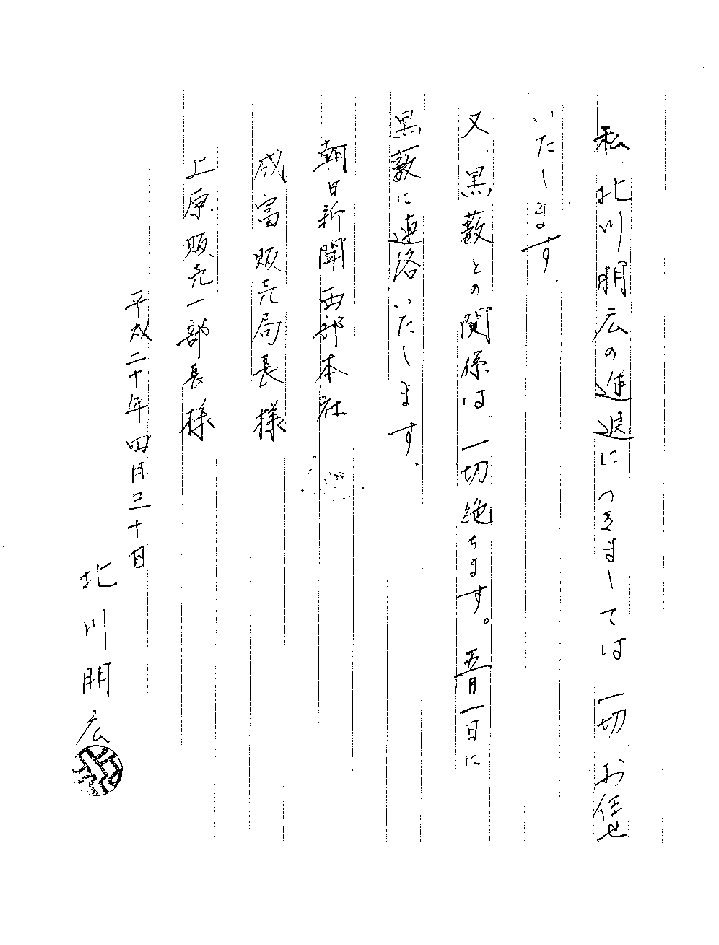 私 北川明広の進退につきましては 一切 お任せ
いたします。
又、黒薮との関係は 一切絶ちます。五月一日に
黒薮に連絡いたします。
朝日新聞西部本社
成富販売局長様
上原販売一部長様
平成二十年四月三十日
北川明広